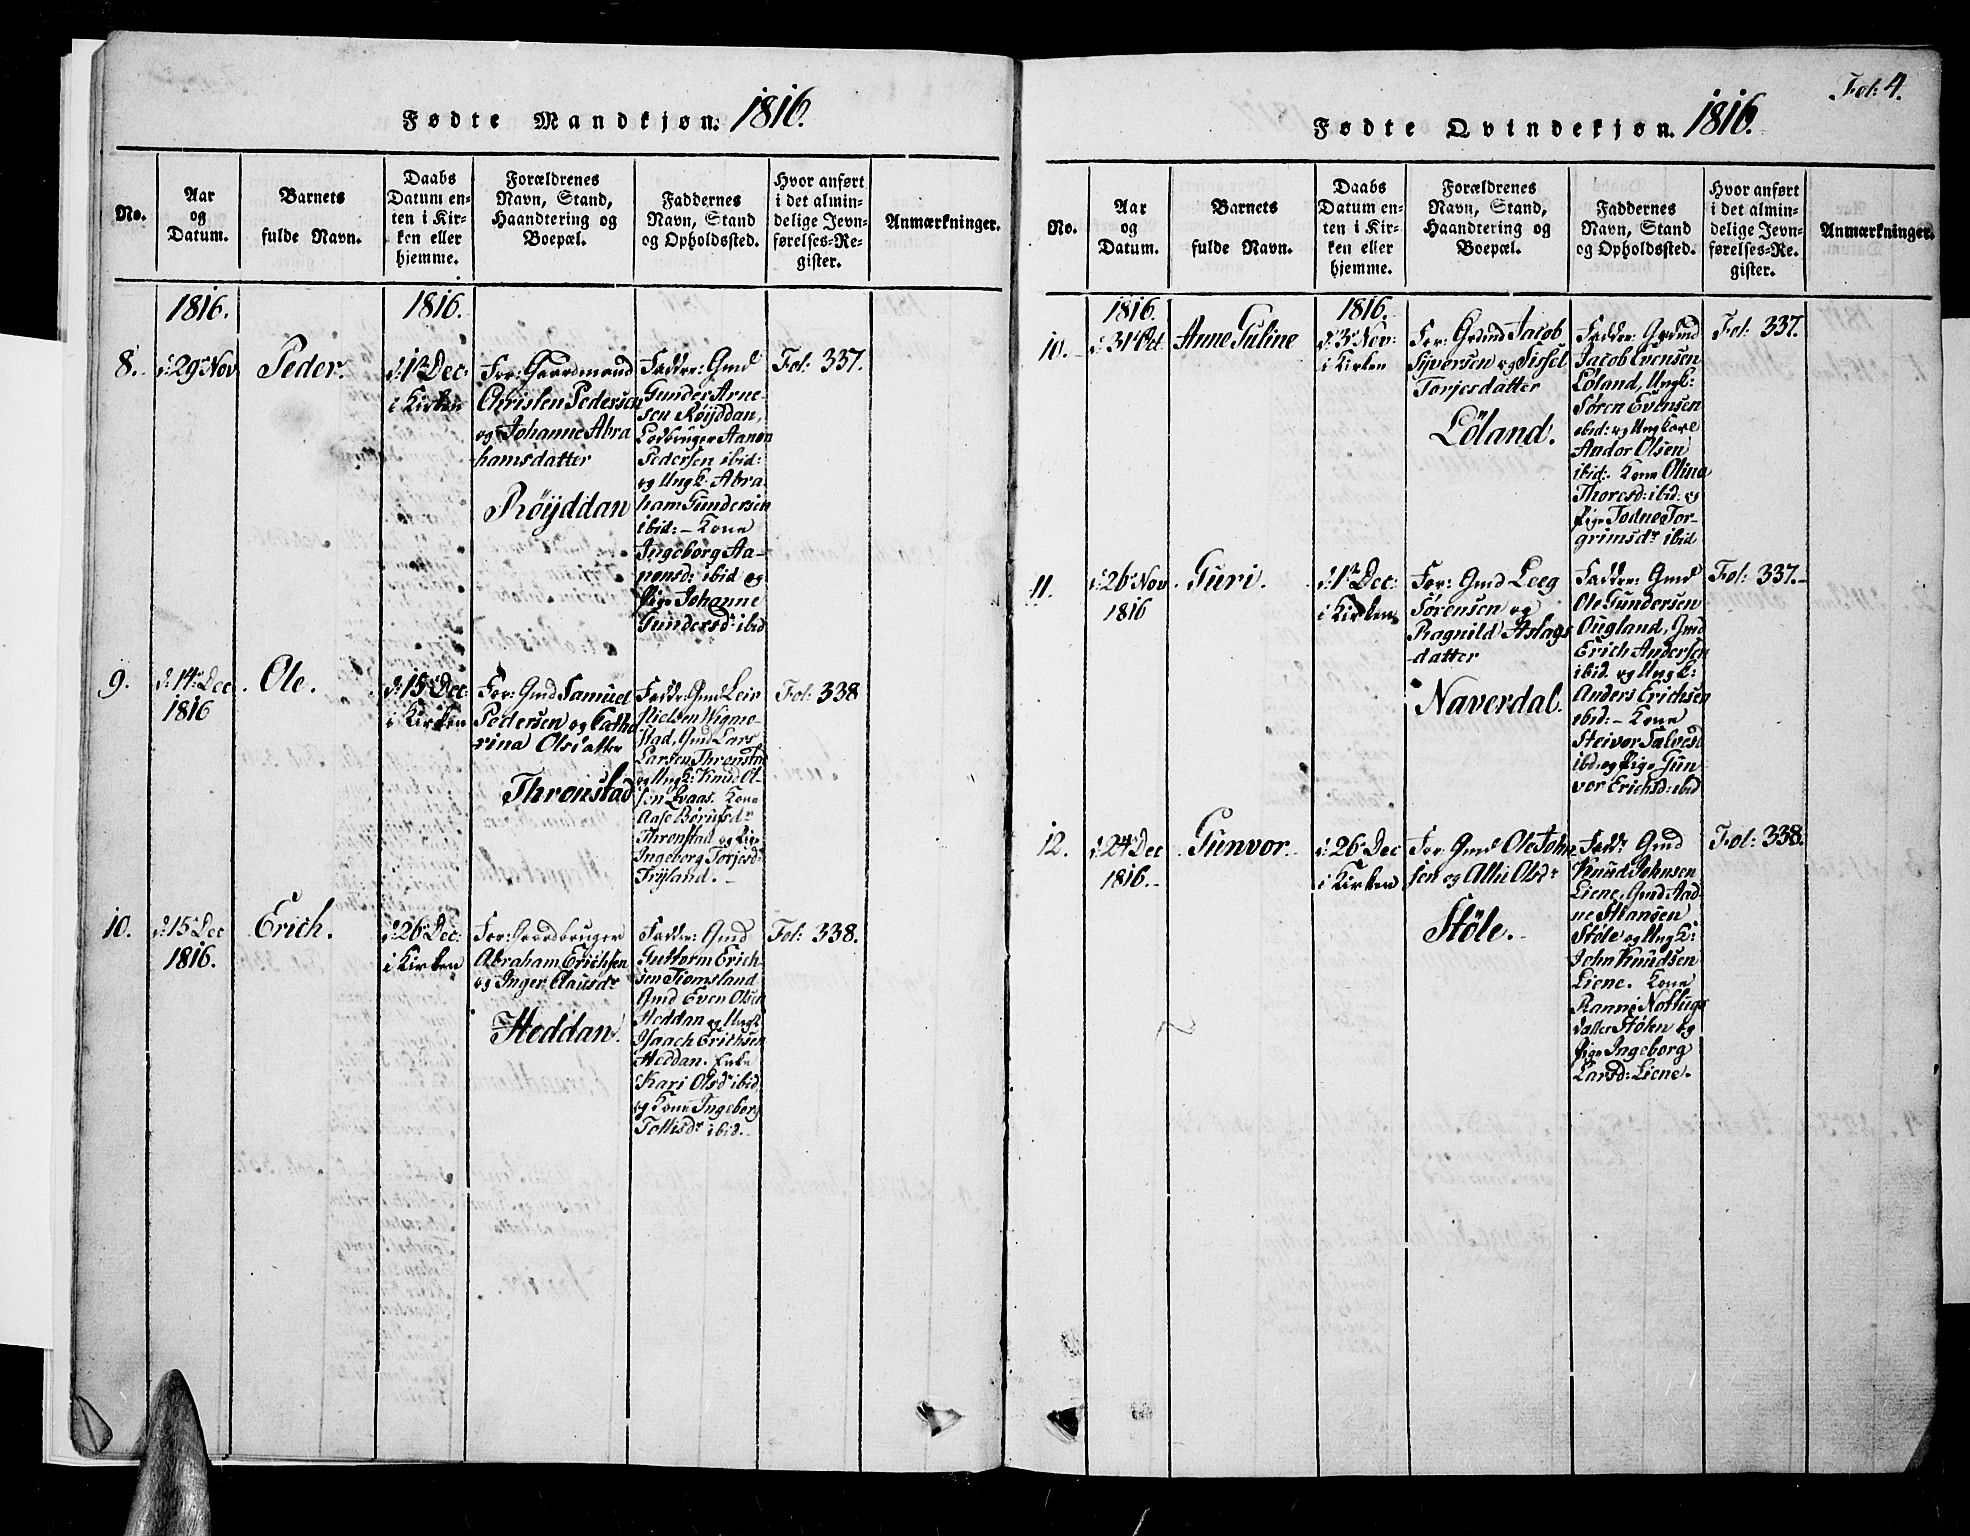 Fødte Mandkjøn. 1816.
No.
Aar
og
Datum.
Barnets
fulde Navn.
Daabs
Datum en-
ten i Kir-
ken eller
hjemme.
Forældrenes
Navn, Stand,
Haandtering og
Boepæl.
Faddernes
Navn, Stand
og Opholdssted.
Hvor anført
i det almin-
delige Jevn-
førelses-Re-
gister.
Anmærkninger.
1816.
1816.
8.
d: 29 Nov
Peder.
d: 1te Dec:
i Kirken
For: Gaardmand
Christen Pedersen
og Johanne Abra
hamsdatter
Röyddan
Faddre: Gmd
Gunder Arne-
sen Röyddan,
Ladbruger Aanon
Pedersen ibid:
og Ungk: Abra
ham Gundersen
ibid: – Kone
Ingeborg Aa-
nonsd: ibid og
Pige Johanne
Gundersd: ibid
Fol: 337.
9.
d: 14 Dec
1816
Ole.
d: 15 Dec
i Kirken
For: Gmd Samuel
Pedersen og Catha
rina Olsdatter
Thronstad
Faddr: Gmd Leir
Nielsen Wigmo-
stad, Gmd Lars
Larsen Thronstad
og Ungk: Knud Ol-
sen Qvaas. Kone
Aase Börufsdr
Thronstad og Pige
Ingeborg Torjesdr
Fryland. –
Fol: 338
10.
d: 15 Dec
1816.
Erich.
d: 26 Dec:
i Kirken
For: Gaardbruger
Abraham Erichsen
og Inger Clausdr
Heddan.
Faddr: Gmd
Guttorm Erich-
sen Tiomsland
Gmd Even Olsen
Heddan og Ungk
Isaach Erichsen
Heddan. Enke
Kari Olsdr ibid
og Kone Ingeborg
Tollisdr ibid. –
Fol: 338.
Fol: 4.
Fødte Qvindekjøn. 1816.
No.
Aar
og
Datum.
Barnets
fulde Navn.
Daabs
Datum en-
ten i Kir-
ken eller
hjemme.
Forældrenes
Navn, Stand,
Haandtering og
Boepæl.
Faddernes
Navn, Stand
og Opholdssted.
Hvor anført
i det almin-
delige Jevn-
førelses-Re-
gister.
Anmærkninger.
1816.
1816.
10.
d: 31 Oct
Anne Guline
d: 3 Nov:
i Kirken
For: Grdmd Jacob
Syversen og Sissel
Torjesdatter
Löland.
Faddr: Grdmd
Jacob Evensen
Löland, Ungk:
Sören Evensen
ibid: og Ungkarl
Andor Olsen
ibid: Kone Olina
Thoresd: ibid: og
Pige Todne Tor-
grimsdr ibid
Fol: 337.
11.
d: 26 Nov
1816
Guri.
d: 1te Dec:
i Kirken
For: Gmd Leeg
Sörensen og
Ragnild Aslags
datter
Naverdal.
Faddr: Gmd
Ole Gundersen
Ougland, Gmd
Erich Andersen
ibid. og Ungk:
Anders Erichsen
ibid: – Kone
Steivor Salvesd
ibd. og Pige Gun
vor Erichsd: ibid
Fol: 337. –
12.
d: 24 Dec
1816. –
Gunvor. –
d: 26 Dec
i Kirken
For: Gmd Ole John
sen og Allii Olsdr
Stöle. –
Faddr: Gmd
Knud Johnsen
Liene, Gmd Aad
ne Stiansen
Stöle og Ungk:
John Knudsen
Liene. Kone
Ranni Nottugs
datter Stölen og
Pige Ingeborg
Larsd: Liene.
Fol: 338.